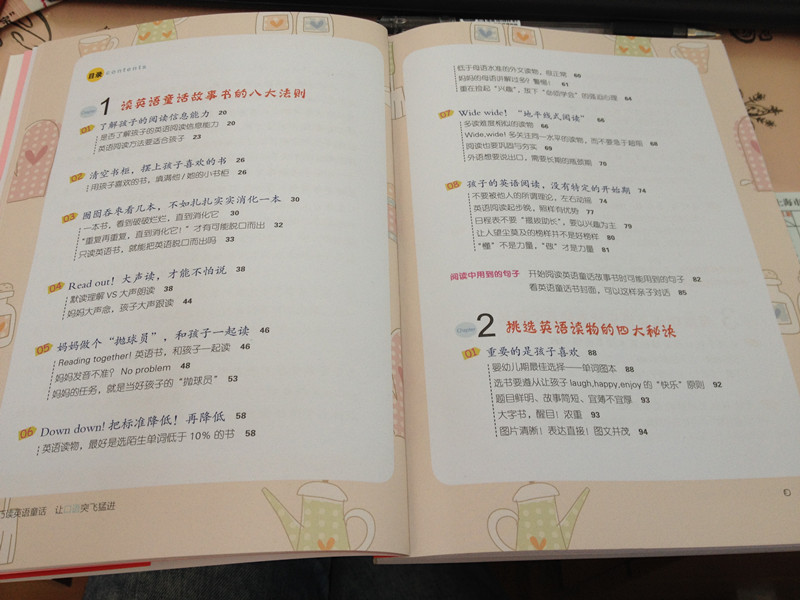 目录 contents
Chapter 1 读英语童话故事书的八大法则
01 了解孩子的阅读信息能力 20
是否了解孩子的英语阅读信息能力 20
英语阅读方法要适合孩子 23
02 清空书柜，摆上孩子喜欢的书 26
用孩子喜欢的书，填满他/她的小书柜 26
03 囫囵吞枣看几本，不如扎扎实实消化一本 30
一本书，看到破破烂烂，直到消化它 30
“重复再重复，直到消化它！”才有可能脱口而出 32
只读英语书，就能把英语脱口而出吗 33
04 Read out! 大声读，才能不怕说 38
默读理解 VS 大声朗读 38
妈妈大声念，孩子大声跟读 44
05 妈妈做个“抛球员”，和孩子一起读 46
Reading together! 英语书，和孩子一起读 46
妈妈发音不准？ No problem 48
妈妈的任务，就是当好孩子的“抛球员” 53
06 Down down! 把标准降低！再降低 58
英语读物，最好是选陌生单词低于 10% 的书 58
巧读英语童话 让口语突飞猛进
低于母语水准的外文读物，很正常 60
妈妈的母语讲解过多？警惕！ 61
重在捡起“兴趣”，放下“必须学会”的强迫心理 64
07 Wide wide! “地平线式阅读” 66
多读难度相似的读物 66
Wide,wide! 多关注同一水平的读物，而不要急于越级 68
阅读也要巩固与夯实 69
外语想要说出口，需要长期的瓶颈期 70
08 孩子的英语阅读，没有特定的开始期 74
不要被他人的所谓理论，左右动摇 74
英语阅读起步晚，照样有优势 77
日程表不要“揠苗助长”，要以兴趣为主 79
让人望尘莫及的榜样并不是好榜样 80
“棚”不是力量，“做”才是力量 81
阅读中用到的句子 开始阅读英语童话故事书时可能用到的句子 82
看英语童话书封面，可以这样亲子对话 85
Chapter 2 挑选英语读物的四大秘诀
01 重要的是孩子喜欢 88
婴幼儿期最佳选择——单词图本 88
选书要遵从让孩子 laugh,happy,enjoy 的“快乐”原则 92
题目鲜明、故事简短、宜薄不宜厚 93
大字书，醒目！浓重 93
图片清晰！表达直接！图文并茂 94